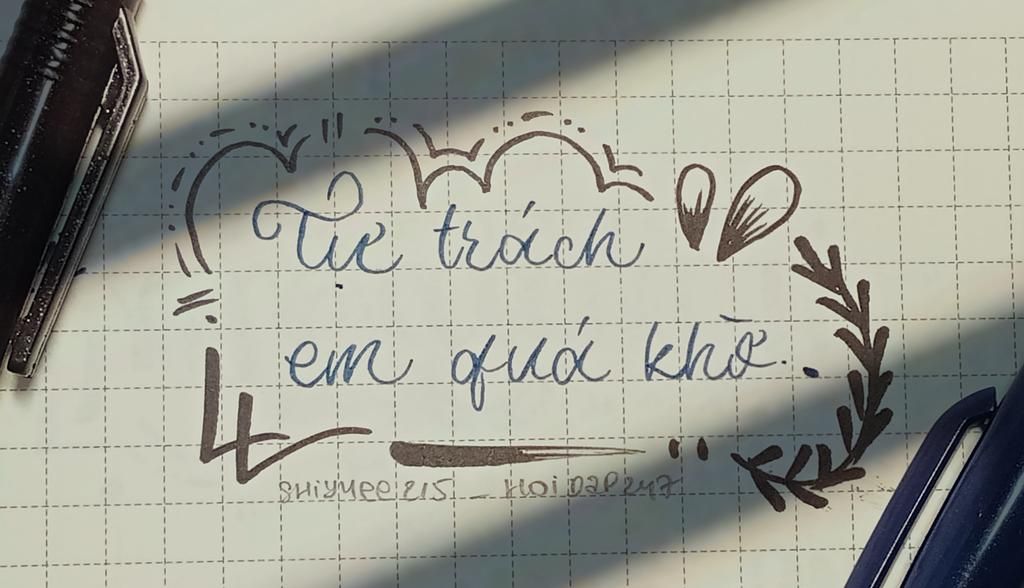 Tự trách
em quá khờ.
SHIYHEE215 _ HOIDAP247